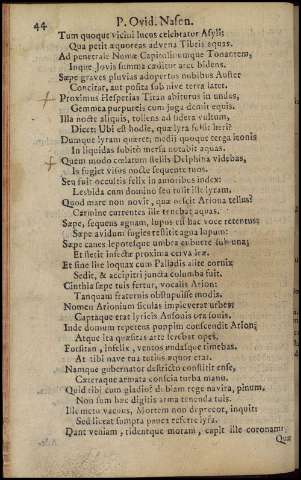 44 P. Ovid. Nason.
Tum quoque vicini lucus celebratur Asyli:
Qua petit æquoreas advena Tibris aquas.
Ad penetrale Numæ Capitolinumque Tonantem,
Inque Jovis summa cæditur arce bidens.
Sæpe graves pluvias adopertus nubibus Auster
Concitat, aut posita sub nive terra latet.
Proximus Hesperias Titan abiturus in undas,
Gemmea purpureis cum juga demit equis.
Illa nocte aliquis, tollens ad sidera vultum,
Dicet: Ubi est hodie, quæ lyra fulsit heri?
Dumque lyram quæret; medii quoque terga leonis
In liquidas subito mersa notabit aquas.
Quem modo cælatum stellis Delphina videbas,
Is fugiet visus nocte sequente tuos.
Seu fuit occultis felix in amoribus index:
Lesbida cum domino seu tulit ille lyram.
Quod mare non novit, quæ nescit Ariona tellus?
Carmine currentes ille tenebat aquas.
Sæpe, sequens agnam, lupus est hac voce retentus;
Sæpe avidum fugiens restitit agna lupum:
Sæpe canes lepotesque umbra cubuere sub una;
Et stetit infectæ proxima cerva leæ.
Et sine lite loquax cum Palladis alite cornix
Sedit, & accipitri juncta columba fuit.
Cinthia sæpe tuis fertur, vocalis Arion:
Tanquam fraternis obstupuisse modis.
Nomen Arionium siculas impleverat urbes;
Captaque erat lyricis Ausonis ora sonis.
Inde domum repetens puppim conscendit Arion;
Atque ita quæsitas arte ferebat opes.
Forsitan, infelix, ventos undasque timebas.
At tibi nave tua tutius æquor erat.
Namque gubernator destricto constitit ense,
Cæteraque armata conscia turba manu.
Quid tibi cum gladio? dubiam rege navita, pinum,
Non sunt hæc digitis arma tenenda tuis.
Ille metu vacuus, Mortem non deprecor, inquit:
Sed liceat sumpta pauca referre lyra.
Dant veniam, ridentque moram, capit ille coronam:
Quæ